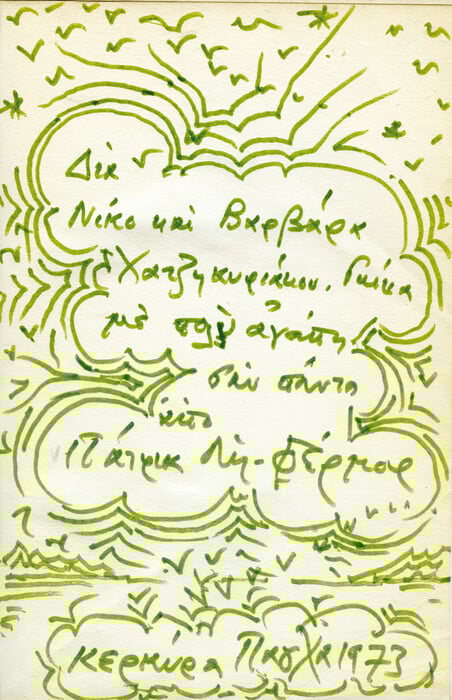 Διὰ
Νίκο καὶ Βαρβάρα
Χατζηκυριάκου. Γκίκα
μὲ πολλὴ ἀγάπη
σὰν πάντα
ἀπὸ
Πάτρικ Λη-Φέρμορ
κερκύρα Πάσχα 1973